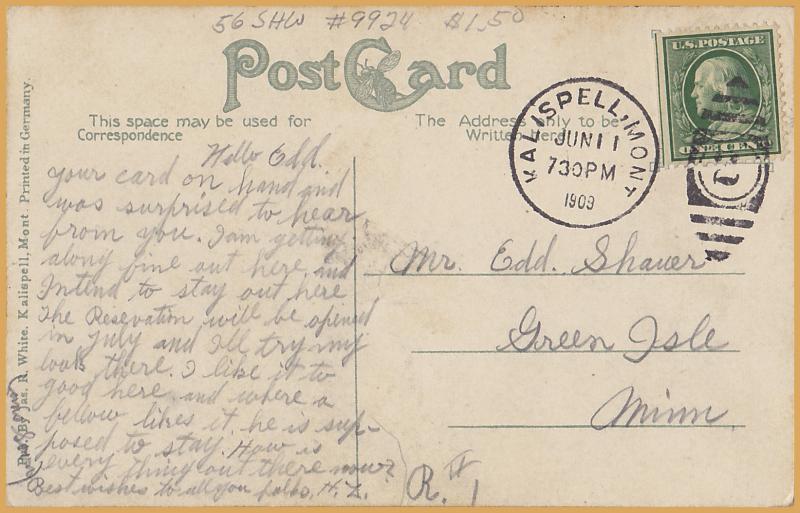 56 SHW #9924 $1.50
Post Card
This space may be used for
Correspondence
The Address only to be
Written Here
U.S. POSTAGE
ONE CENT
KALISPELL, MONT
JUN 11
730PM
1909
Hello Edd.
your card on hand and
was surprised to hear
from you. I am getting
along fine out here, and
Intend to stay out here
The Resevation will be opened
in July and I'll try my
luck there. I like it to
good here, and where a
bellow likes it, he is sup-
posed to stay. How is
every thing out there now?
Best wishes to all you folks, H. Z.
Mr. Edd. Shauer
Green Isle
Minn.
R. # 1
By Jas. R. White. Kalispell, Mont. Printed in Germany.